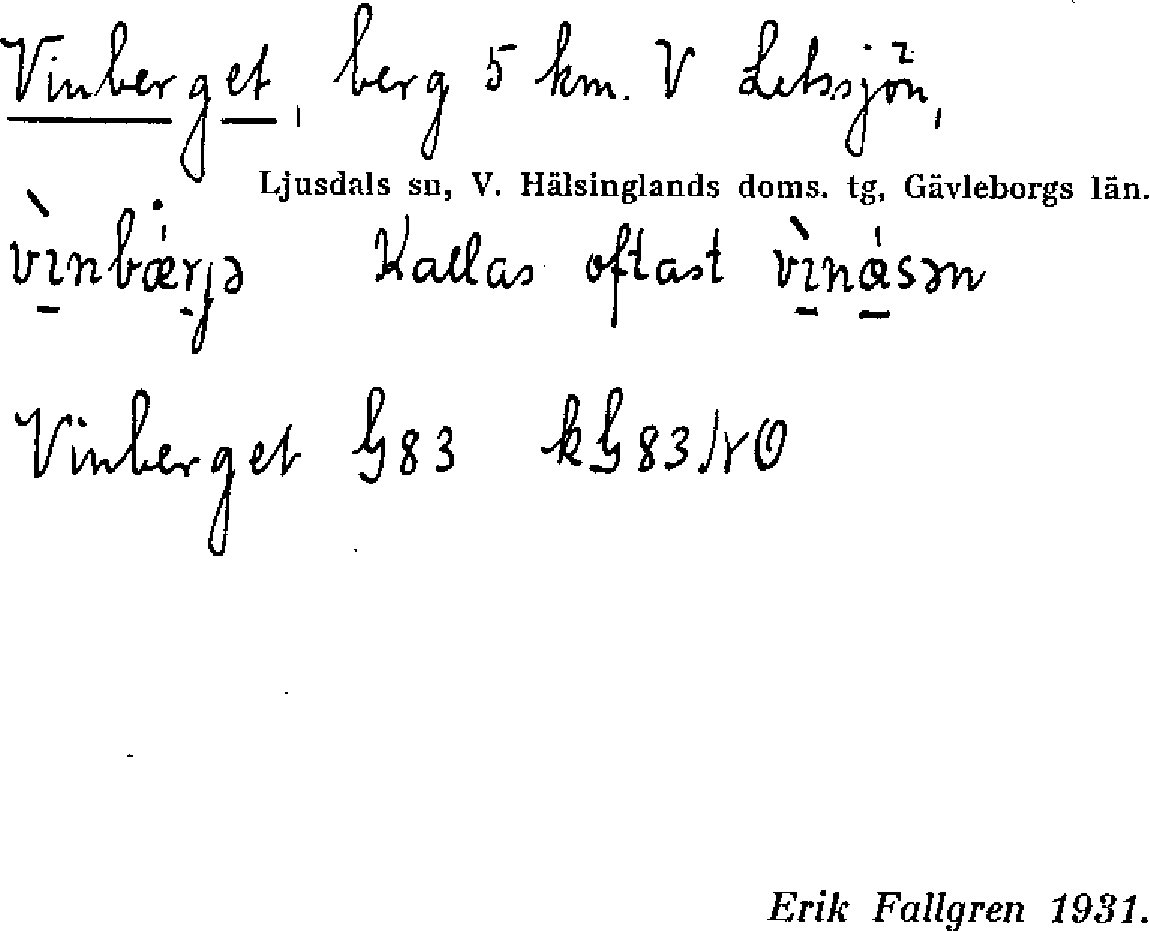 Vinberget, berg 5 km. V Letssjön,
Ljusdals sn, V. Hälsinglands doms. tg, Gävleborgs län.
Kallas oftast
Vinberget G83 kG83
Erik Fallgren 1931.